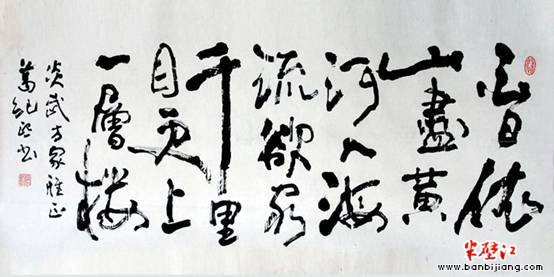 白日依
山盡黃
河入海
流欲窮
千里
目更上
一層樓
炎武方家雅正
萬紀书
半壁江
www.banbijiang.com